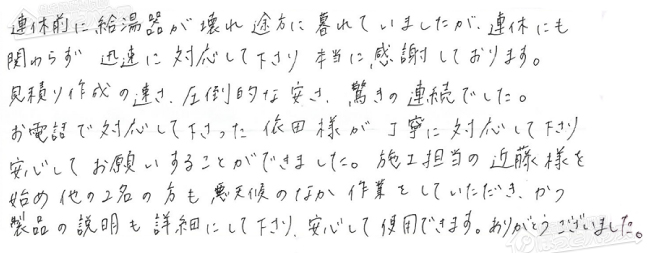 連休前に給湯器が壊れ途方に暮れていましたが、連休にも
関わらず 迅速に対応して下さり 本当に感謝しております。
見積り作成の速さ、圧倒的な安さ、驚きの連続でした。
お電話で対応して下さった依田様が丁寧に対応して下さり
安心してお願いすることができました。施工担当の近藤様を
始め他の2名の方も悪天候のなか作業をしていただき、かつ
製品の説明も詳細にして下さり、安心して使用できます。ありがとうございました。